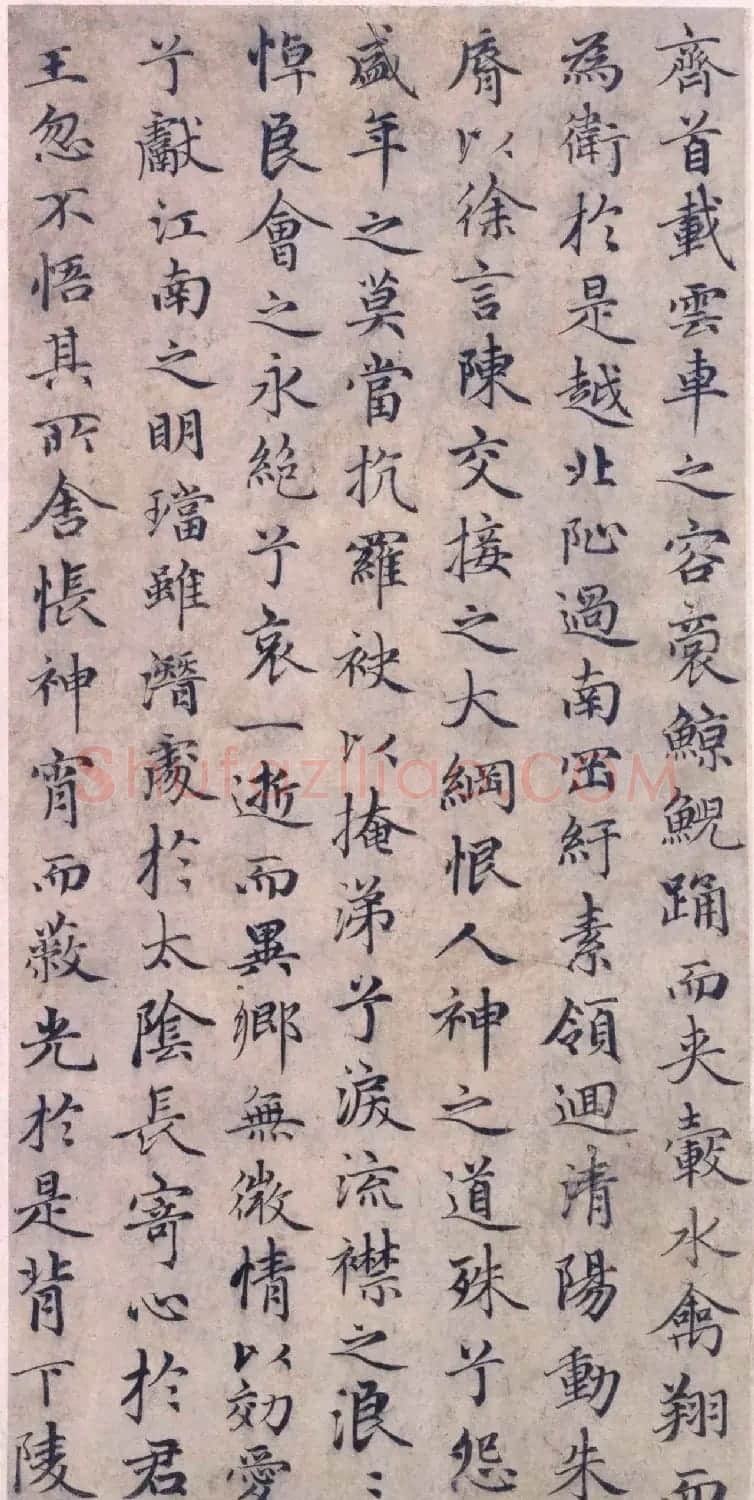 齊首載雲車之容裔鯨鯢踊而夾轂水禽翔而
為衛於是越北阯過南罡紆素領迴清陽動朱
脣以徐言陳交接之大綱恨人神之道殊兮怨
盛年之莫當抗羅袂以掩涕兮淚流襟之浪〻
悼良會之永絶兮哀一逝而異鄉無微情以効愛
兮獻江南之明璫雖潛處於太陰長寄心於君
王忽不悟其所舍悵神宵而蔽光於是背下陵
Shufaziliao.COM